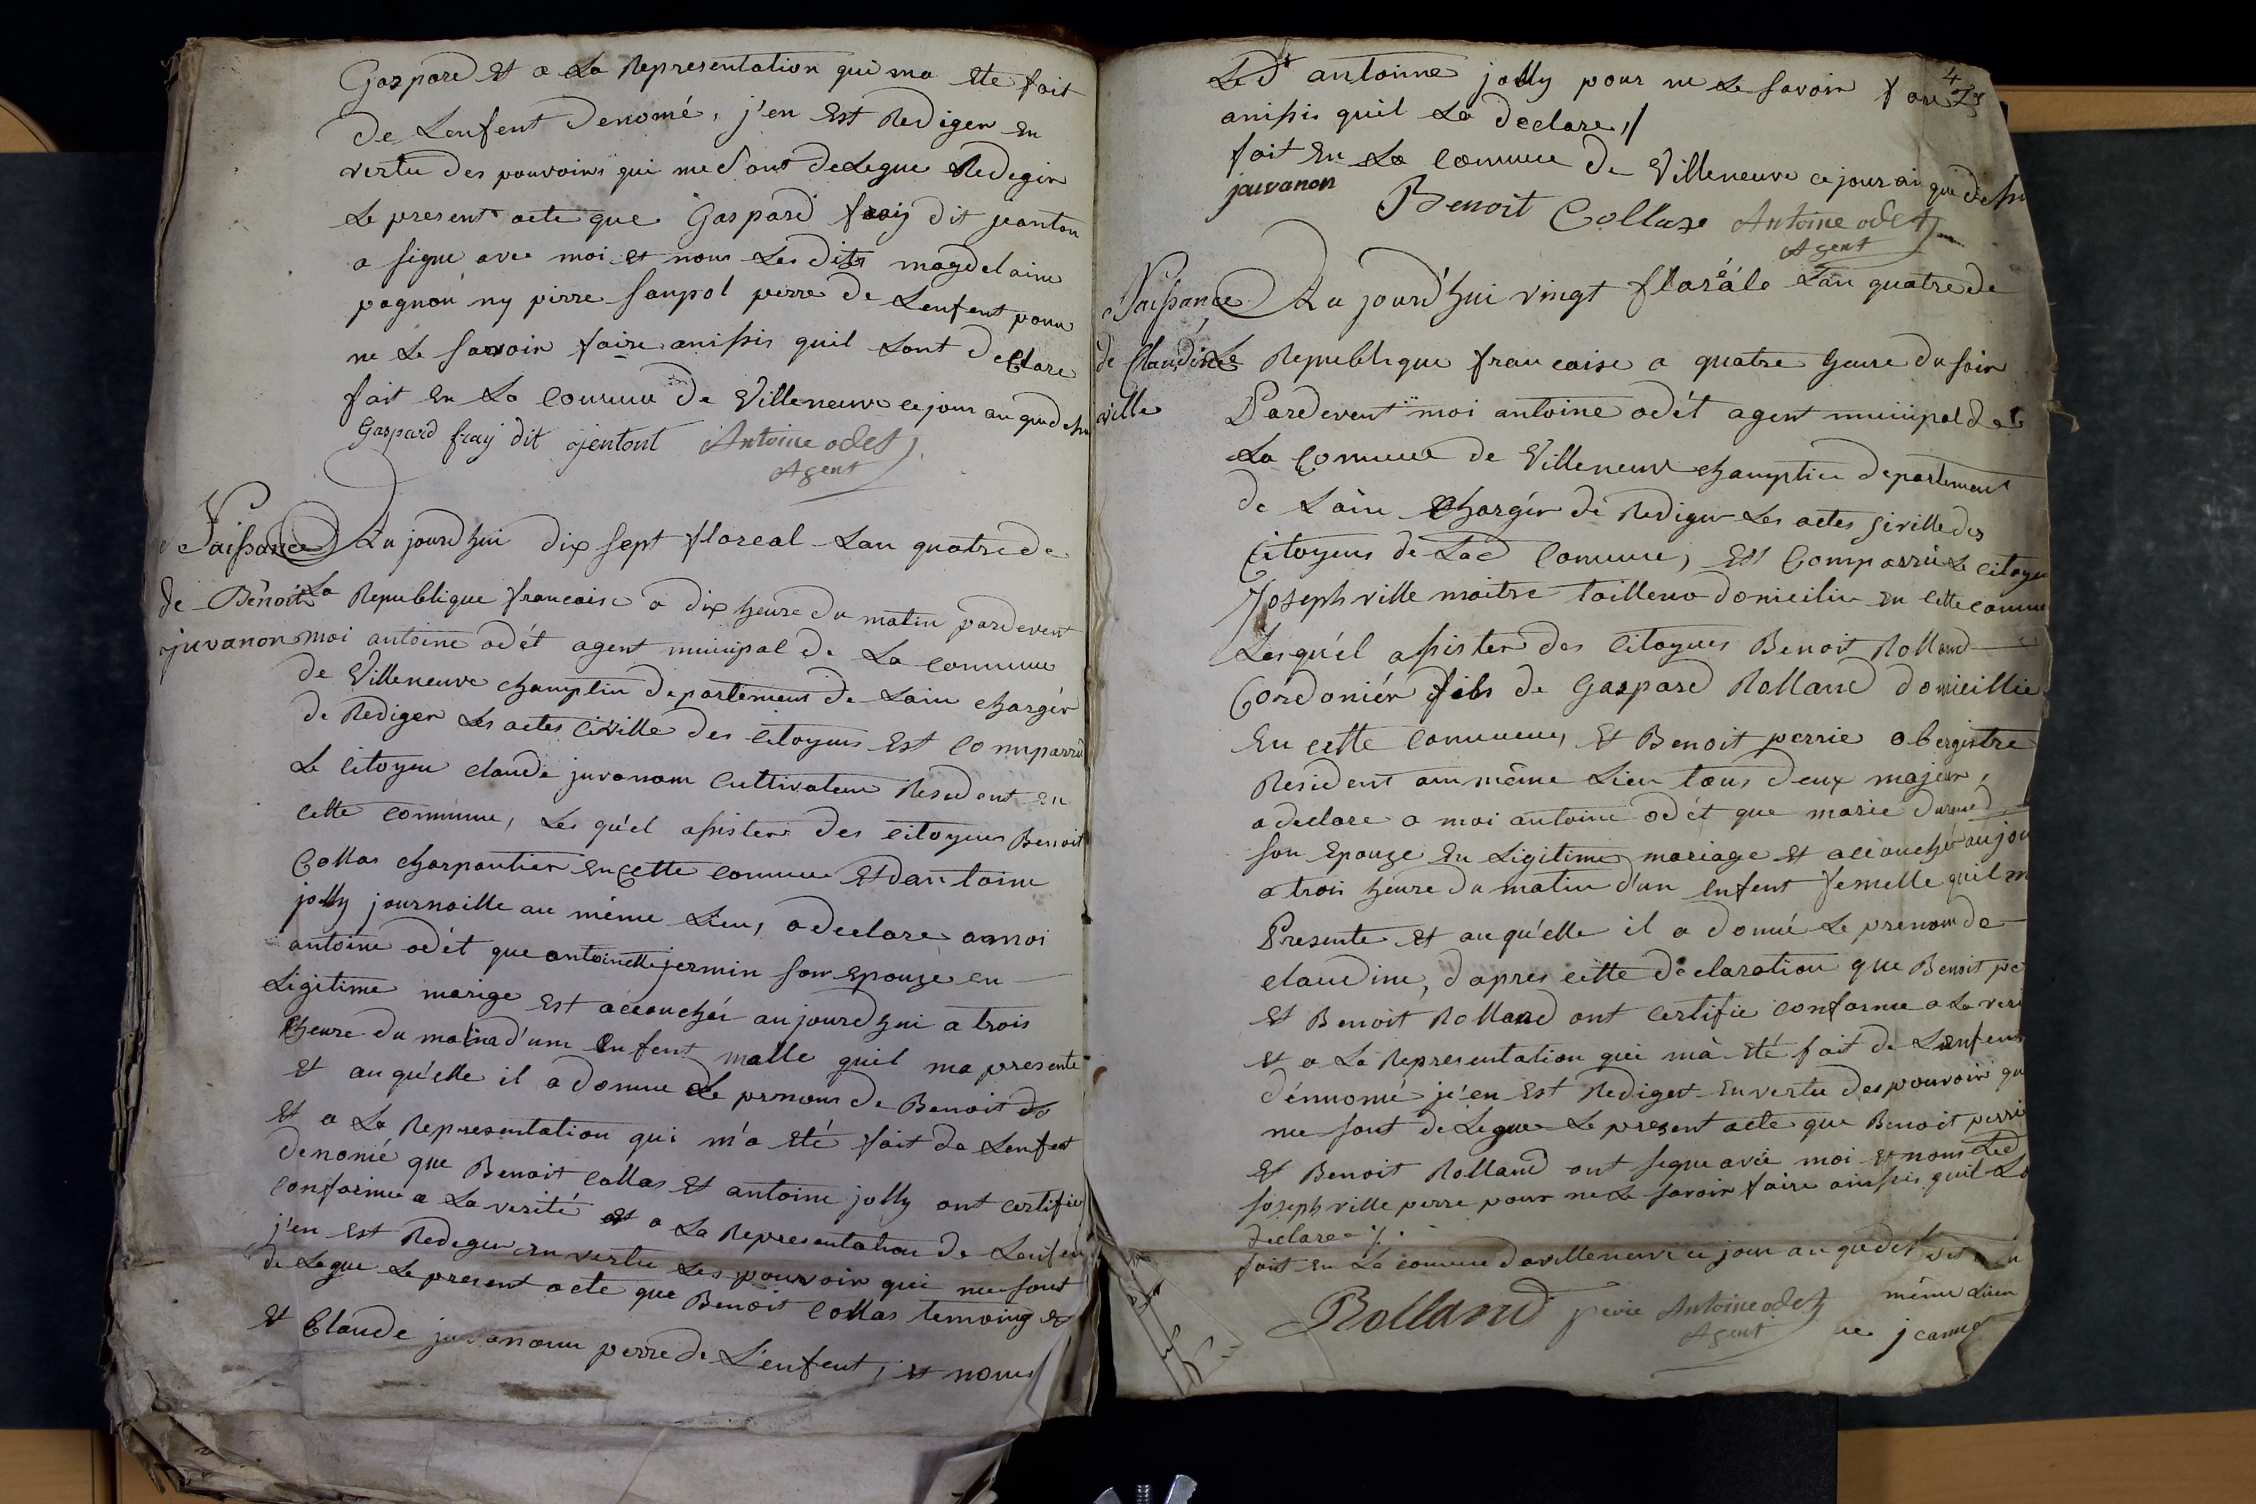 Gaspard et a La Representation qui ma ete fait
de Lenfent denomé, j'en Est Rediger en
vertu des pouvoirs qui me sont delegue Redegir
Le present acte que Gaspard fray dit jeanton
a signe avec moi et nons Les dits magdelaine
pagnon ny pirre Saupol perre de Lenfent pour
ne Le savoir faire anissis quil Lont declare
fait en La Commue de Villeneuve ce jour an que dessu
Gaspard fray dit jentont Antoine odet
Agent
Naissance Au jourd'hui dix sept floreal Lan quatre de
de Benoit La Republique francaise a dix heure du matin pardevent
juvanon moi antoine odét agent municipal de La commune
de Villeneuve champlin departement de Lain chargér
de Rediger Les actes civille des citoyens Est comparrù
Le citoyen claude juvanom Cultivateur Resident en
cette commune, Les qu'el assister des citoyens Benoit
Collas charpantier en Cette commue Et dantoine
jolly journaille au même Lieu, a declare a moi
antoine odét que antoinette jermin son epouze en
Ligitime marige est accouchér aujourdhui a trois
heure du matin d'um enfent malle quil ma presente
et au qu'elle il a donnue Le prenom de Benoit
Et a La Representation qui m'a été fait de Lenfent
denomé que Benoit Collas et antoine jolly ont certifie
conforme a La verité et a La Representation de Lenfen
j'en est Rediger en vertu Les pouvoir qui me sont
de Legue Le present acte que Benoit Collas temoing
et Claude juvanoum perre de L'enfent, et noms
4
Le dt antoinne jolly pour ne Le savoir faire
anissis quil La declare ,/
fait En La Commue de Villeneuve ce jour an que dessu
juvanon Benoit Collas Antoine odet
Agent
Naissance Au jourd'hui vingt floréale Lan quatre de
de Claudine La Republique francaise a quatre heure du soir
ville Pardevent moi antoine odét agent municipal de
La Commue de Villeneuve champlin departement
de Lain chargér de Rediger Les actes siville des
Citoyens de Lad Commue, est Comparrù Le citoyen
Joseph ville maitre tailleur domicilie en cette commue
Lesqu'él assister des Citoyens Benoit Rolland
Cordoniér fils de Gaspard Rolland domicillie
En cette Commune, et Benoit perrie obergistre
Resident am même Lieu tous deux majeur,
a declare a moi antoine odét que marie
son epouze en Ligitime mariage et accouchér aujou
a trois heure du matin d'un enfent femelle quil m
Presente et au qu'elle il a donné Le prenom de
claudine, d'apres cette declaration que Benoit pe
et Benoit Rolland ont certifie conforme a La veri
et a La Representation qui mà été fait de Lenfent
dénnomé je'en est Rediget en vertu des pouvoir qu
me sont de Legue Le present acte que Benoit perri
et Benoit Rolland ont signe avec moi et nons Led
Joseph ville perre pour ne Le savoir faire anissis quil La
declare ./.
fait en La commue de villeneuve ce jour an que dessu
Rolland perie Antoine odet
Agent
même Lieu